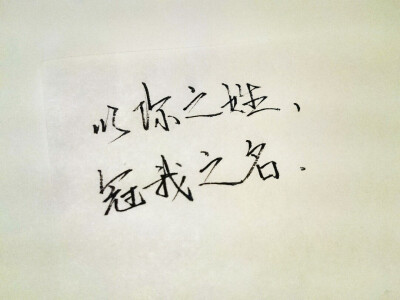 以你之姓、
冠我之名.